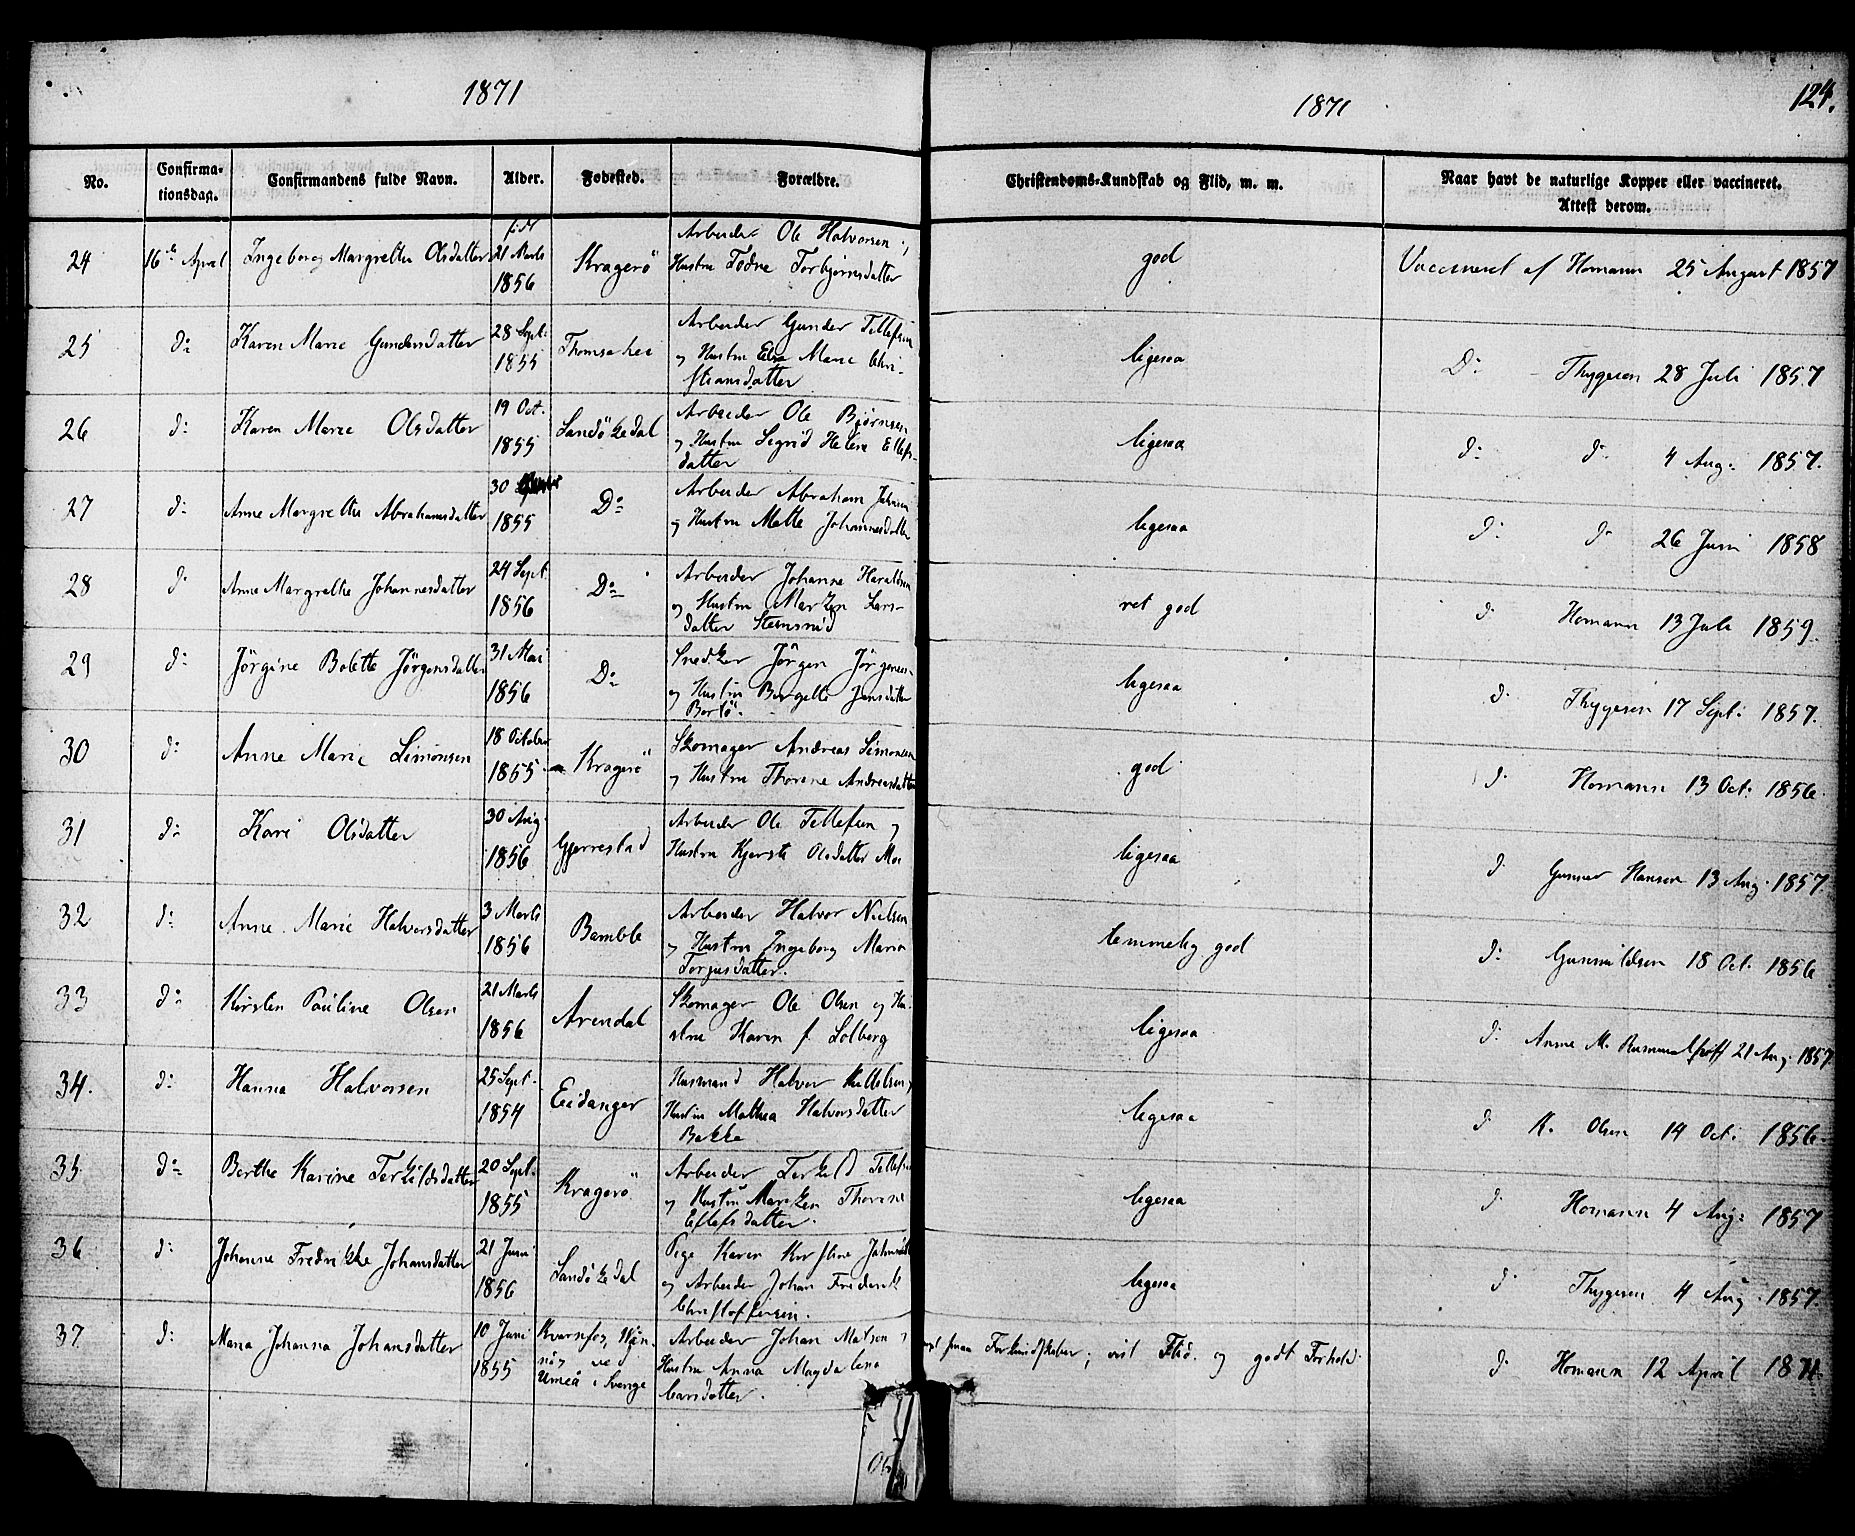 1871
1871
124.
No.
Confirma-
tionsdag.
Confirmandens fulde Navn.
Alder.
Fødested.
Forældre.
Christendoms-Kundskab og Flid, m. m.
Naar havt de naturlige Kopper eller vaccineret.
Attest derom.
24
16de April
Ingeborg Margrethe Olsdatter
født
21 Marts
1856
Kragerö
Arbeider Ole Halvorsen,
Hustru Torbjørnsdatter
god
Vaccineret af Homann 25 August 1857
25
do
Karen Marie Gundersdatter
28 Sept:
1855
Thomsehei
Arbeider Gunder Tellefsen
og Hustru Elsa Marie Chri-
stiansdatter
ligesaa
Do Thygesen 28 Juli 1857
26
do
Karen Marie Olsdatter
19 Oct.
1855
Sandökedal
Arbeider Ole Bjørnsen
og Hustru Sigrid Helene Ellefs-
datter
ligesaa
do do 4 Aug: 1857.
27
do
Anne Margrethe Abrahamsdatter
30
1855
Do
Arbeider Abraham
og Hustru Malte Johannesdatter
ligesaa
do do 26 Juni 1858
28
do
Anne Margrethe Johannesdatter
24 Sept.
1856
Do
Arbeider Johannes Haraldsen
og Hustru Marken Lars-
datter
ret god
do Homann 13 Juli 1859.
29
do
Jörgine Bolette Jörgensdatter
31 Mai
1856
Do
Snedker Jörgen Jörgensen
og Hustru Bergitte Jensdatter
Bortö.
ligesaa
do Thygesen 17 Sept: 1857.
30
do
Anne Marie Simonsen
18 October
1855
Kragerö
Skomager Andreas Simonsen
og Hustru Thorine Andreasdatter
god
do Homann 13 Oct: 1856.
31
do
Kari Olsdatter
30 Aug:
1856
Gjerrestad
Arbeider Ole Tellefsen og
Hustru Kjersti Olsdatter
ligesaa
do Gunner Hansen 13 Aug. 1857.
32
do
Anne Marie Halvorsdatter
3 Marts
1856
Bamble
Arbeider Halvor Nielsen
og Hustru Ingeborg Maria
Torjusdatter.
temmelig god
do 18 Oct: 1856
33
do
Kirsten Pauline Olsen
21 Marts
1856
Arendal
Skomager Ole Olsen og Hu-
stru Karen f. Solberg
ligesaa
do Anne M. 21 Aug. 1857
34.
do
Hanna Halvorsen
25 Sept.
1854
Eidanger
Husmand Halvor Kittelsen,
Hustru Mathea Halvorsdatter
Bakke
ligesaa
do K. Olsen 14 Oct: 1856.
35
do
Berthe Karine Terkildsdatter
20 Sept.
1855
Kragerö
Arbeider Terkild Tellefsen
og Hustru Marken Thorine
Ellefsdatter.
ligesaa
do Homann 4 Aug: 1857
36
do
Johanne Fredrikke Johansdatter
21 Juni
1856
Sandökedal
Pige Karen Kirstine
og Arbeider Johan Frederik
Christoffersen.
ligesaa
do Thygesen 4 Aug. 1857.
37
do
Maria Johanna Johansdatter
10 Juni
1855
Kvarnfos,
ved
Umeå i Sverige
Arbeider Johan Matson,
Hustru Anna Magdalena
Carsdatter.
smaa Forkundskaber; vist Flid og godt Forhold
do Homann 12 April 1871.